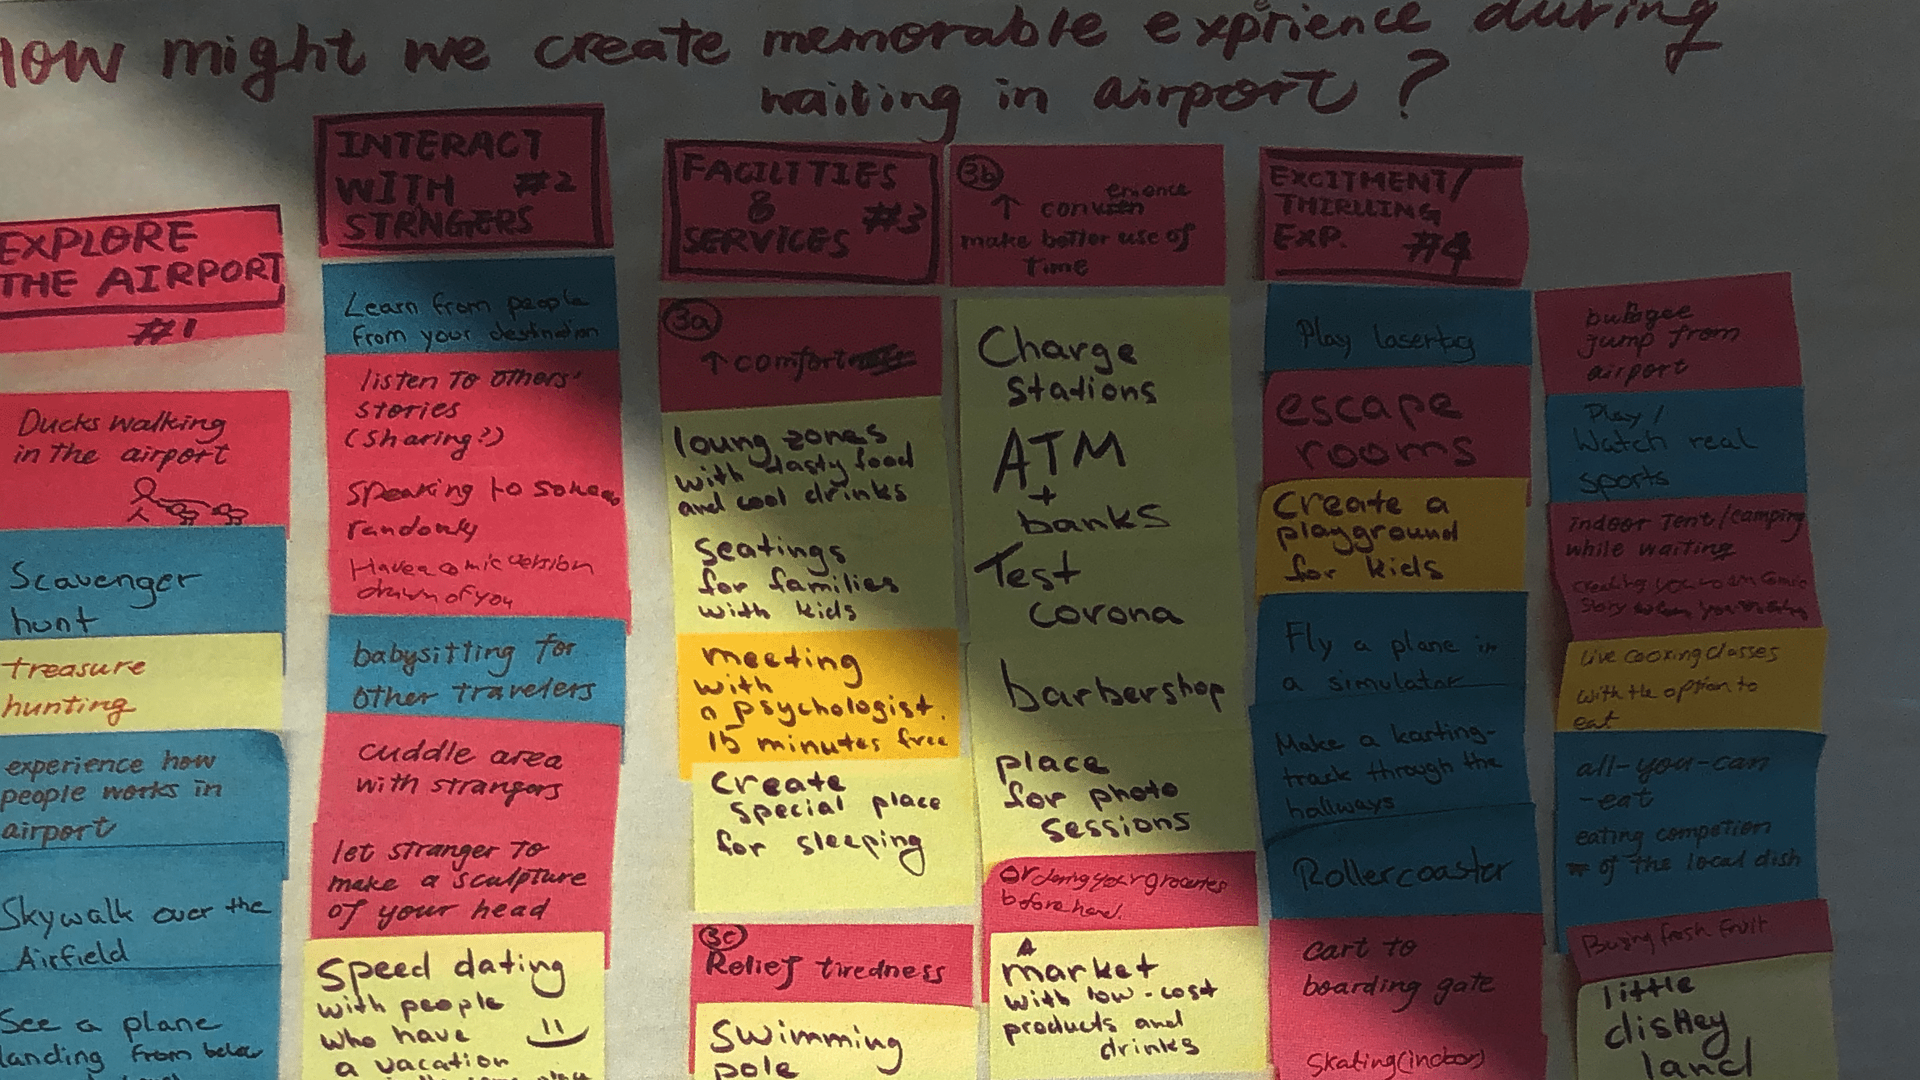 How might we create memorable exprience during
waiting in airport?
EXPLORE
THE AIRPORT
#1
Ducks walking
in the airport
Scavenger
hunt
treasure
hunting
experience how
people works in
airport
Skywalk over the
Airfield
See a plane
landing from below
INTERACT
WITH #2
STRNGERS
Learn from people
from your destination
listen to others'
stories
(sharing?)
speaking to
randomly
Have a comic version
drawn of you
babysitting for
other travelers
cuddle area
with strangers
let stranger to
make a sculpture
of your head
Speed dating
with people
who have
a vacation
FACILITIES
&
SERVICES #3
3a
↑ comfort
loung zones
with tasty food
and cool drinks
seatings
for families
with kids
meeting
with
a psychologist.
15 minutes free
create
special place
for sleeping
3c
Relief tiredness
Swimming
pole
3b
↑ convenience
make better use of
time
Charge
stations
ATM
+
banks
Test
corona
barbershop
place
for photo
sessions
Ordering your groceries
beforehand.
A
market
with low-cost
products and
drinks
EXCITMENT/
THIRLLING
EXP. #4
Play lasertag
escape
rooms
Create a
playground
for kids
Fly a plane in
a simulator
Make a karting-
track through the
hallways
Rollercoaster
cart to
boarding gate
skating (indoor)
jump from
airport
Play/
Watch real
sports
indoor Tent/camping
while waiting
live cooking classes
with the option to
eat
all-you-can
-eat
eating competion
of the local dish
Buing fresh fruit
little
disney
land